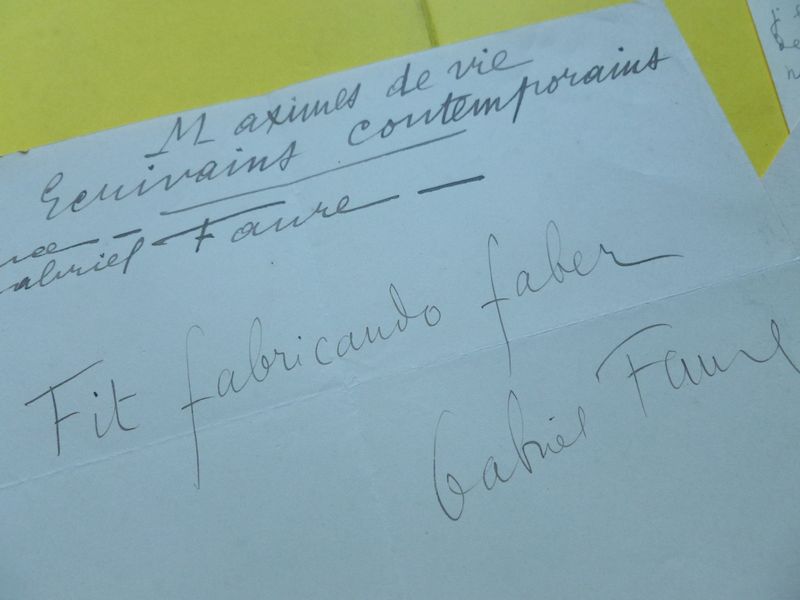 Maximes de vie
Ecrivains contemporains
Gabriel Faure
Fit fabricando faber
Gabriel Faure